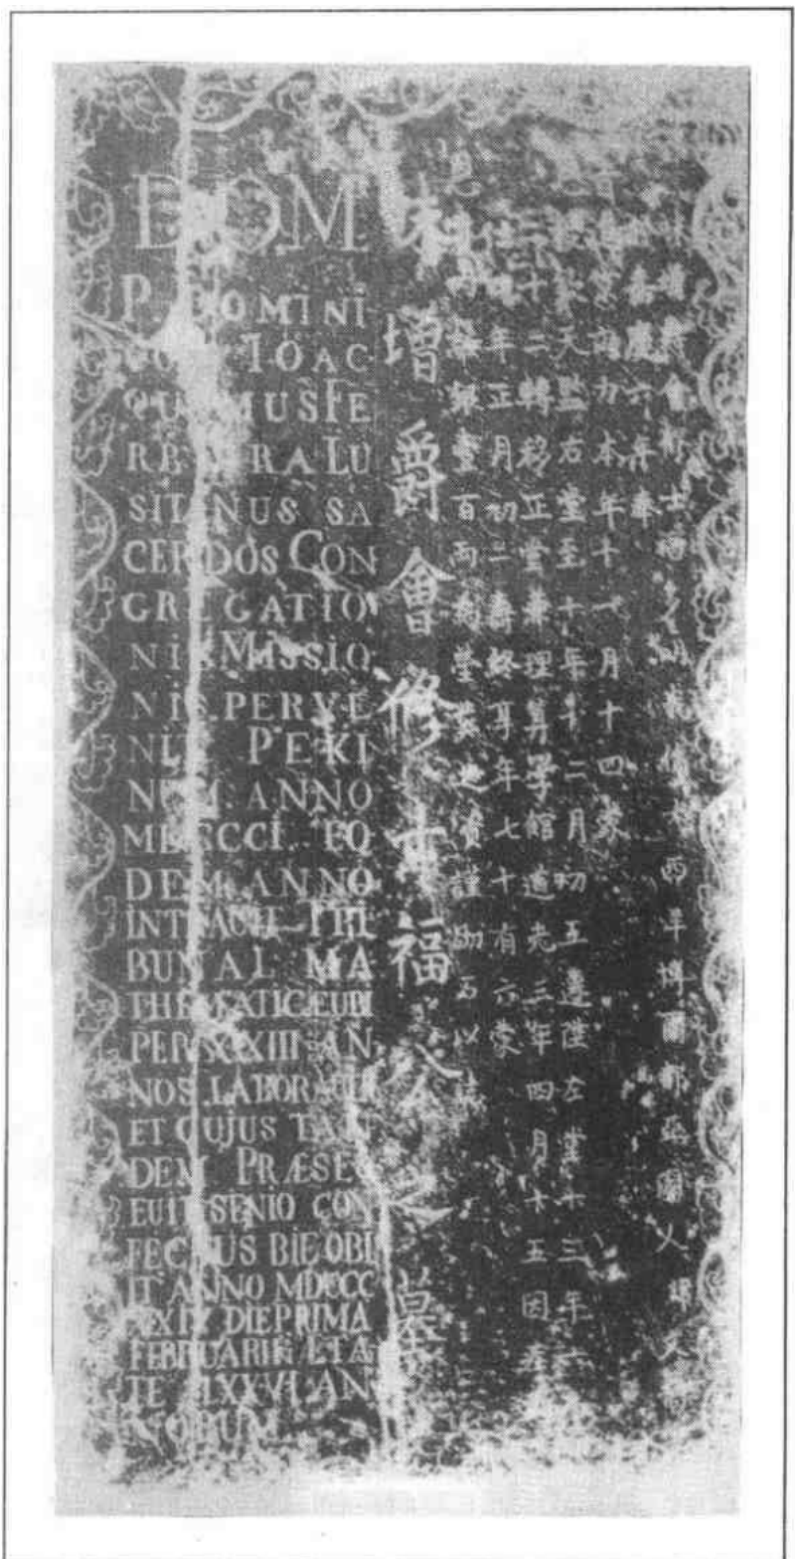 D.O.M.
P. DOMINI
IOAC
QUIMUS FE
RREIRA LU
SITANUS SA
CERDOS CON
GREGATIO
NIS MISSIO
NIS PERVE
NIT PEKI
NUM ANNO
MDCCCI EO
DEM ANNO
INTRAVIT TRI
BUNAL MA
THEMATICÆ UBI
PER XXIII AN
NOS LABORAVIT
ET CUJUS TAN
DEM PRÆSES
FUIT SENIO CON
FECTUS BIE OBI
IT ANNO MDCCC
XXIV DIE PRIMA
FEBRUARII ÆTA
TE LXXVI AN
NORUM
會修士 西洋博爾都亞國人
嘉慶六年奉
效力本年十一月十四蒙
欽天監右堂至十年十二月初五遷陞左堂十三年六
二十二轉移正堂兼理算學館道光三年四月十五因
年正月初二壽終享年七十有六蒙
銀壹百兩為塋葬之資謹勒石以誌
增爵會修士福公之墓